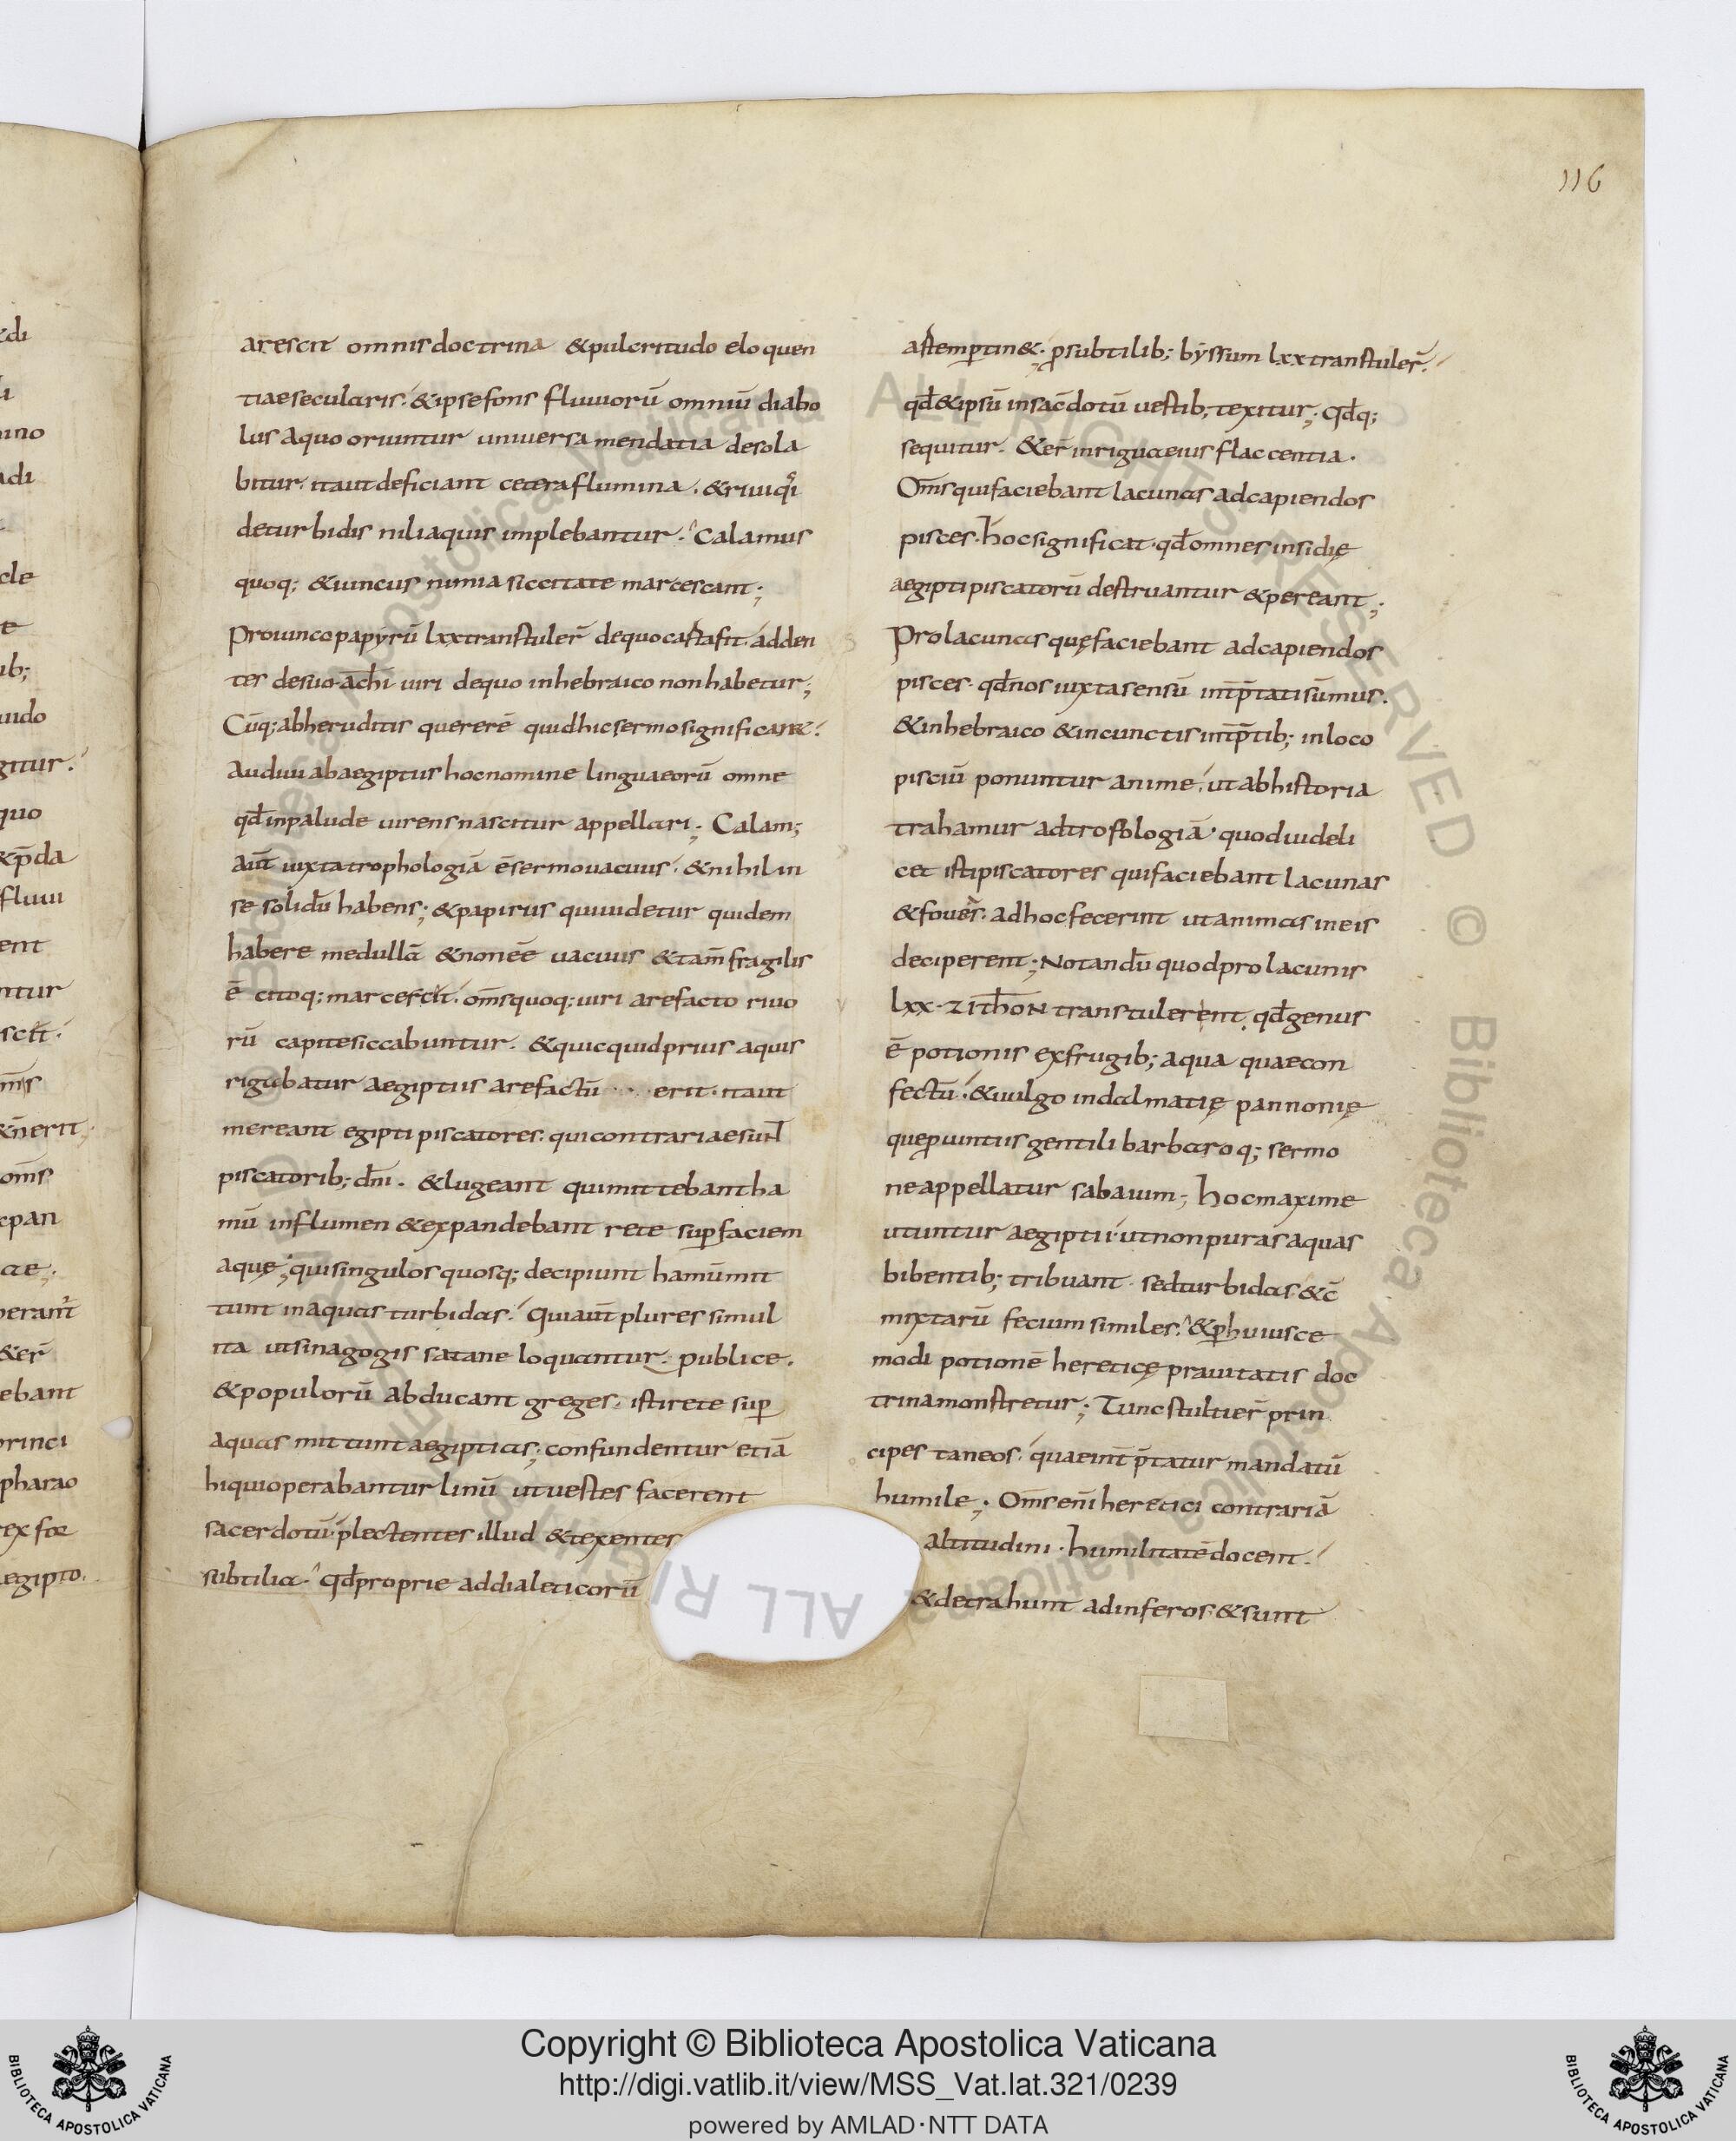 116
arescit omnis doctrina &pulcritudo eloquen
tiae secularis. &ipse fons fluuiorū omniū diabo
lus a quo oriuntur uniuersa mendatia desola
bitur. ita ut deficiant cetera flumina. &riui qͥ
de turbidis nili aquis implebantur. Calamus
quoq; &iuncus nimia siccitate marcescant;
Pro iunco papyrū lxx transtuler̄ de quo casta fit. adden
ter de suo achi uiri de quo in hebraico non habetur;
Cūq; ab heruditis quererē quid hic sermo significar&.
Audiui ab aegiptus hoc nomine lingua eorū omne
qđ in palude uirens nascitur appellari; Calam;
aut̄ iuxta trophologiā ē sermo uacuus. &nihil in
se solidū habens; &papirus qui uidetur quidem
habere medullā &non eē uacuus &tam̄ fragilis
ē citoq; marcescit. om̄s quoq; uiri arefacto riuo
rū capite siccabuntur. &quicquid prius aquis
rigabatur aegiptus arefactū erit. ita ut
mereant egipti piscatores. qui contrariae sunt
piscatorib; dn̄i. &lugeant qui mittebant ha
mū in flumen &expandebant rete sup̱ faciem
aquę; qui singulos quosq; decipiunt hamū mit
tunt in aquas turbidas. Qui aut̄ plures simul
ita ut sinagogis satane loquantur. publice.
&populorū abducant greges. isti rete sup̱
aquas mittunt aegiptias; confundentur etiā
hi qui operabantur linū ut uestes facerent
sacerdotū. plectentes illud &texentes
subtilia. qđ proprie ad dialeticorū
astem p̱tin&. p̱ subtilib; byssum lxx transtuler̄.
qđ &ipsū in sac̄dotū uestib; texitur; Qđq;
sequitur. &er̄ inrigua eius flaccentia.
Om̄s qui faciebant lacunas ad capiendos
pisces. hoc significat. qđ omnes insidię
aegipti piscatorū destruantur &pereant;
Pro lacunas quę faciebant ad capiendos
pisces. qđ nos iuxta sensū int̄p̄tati sūmus.
&in hebraico &in cunctis int̄p̄tib; in loco
pisciū ponuntur anime. ut ab historia
trahamur ad trofologiā. quod uideli
cet isti piscatores qui faciebant lacunas
&foues. ad hoc fecerint ut animas in eis
deciperent; Notandū quod pro lacunis
lxx. ZIThON transtulerent. qđ genus
ē potionis ex frugib; aqua quae con
fectū. &uulgo in dalmatię pannonię
que p̱uintiis gentili barbaroq; sermo
ne appellatur sabaium; hoc maxime
utuntur aegiptii. ut non puras aquas
bibentib; tribuant. sed turbidas &c̄
mixtarū fecium similes. &p̱ huiusce
modi potionē hereticę prauitatis doc
trina monstretur; Tunc stulti er̄ prin
cipes taneos. quae int̄p̄tatur mandatū
humile; Om̄s en̄i heretici contrariā
altitudini. humilitatē docent.
&detrahunt ad inferos. &sunt
Copyright © Biblioteca Apostolica Vaticana
http://digi.vatlib.it/view/MSS_Vat.lat.321/0239
powered by AMLAD·NTT DATA
BIBLIOTECA APOSTOLICA VATICANA
BIBLIOTECA APOSTOLICA VATICANA